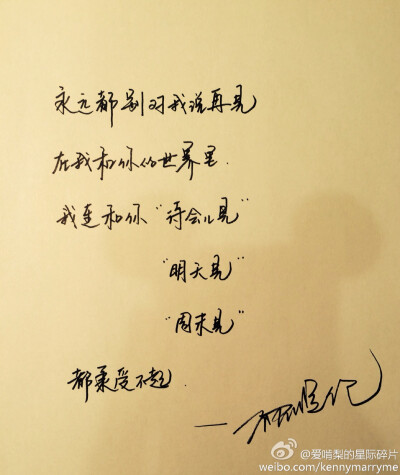 永远都别对我说再见
在我和你的世界里.
我连和你“待会儿见”
“明天见”
“周末见”
都承受不起.
@爱啃梨的星际碎片
weibo.com/kennymarryme